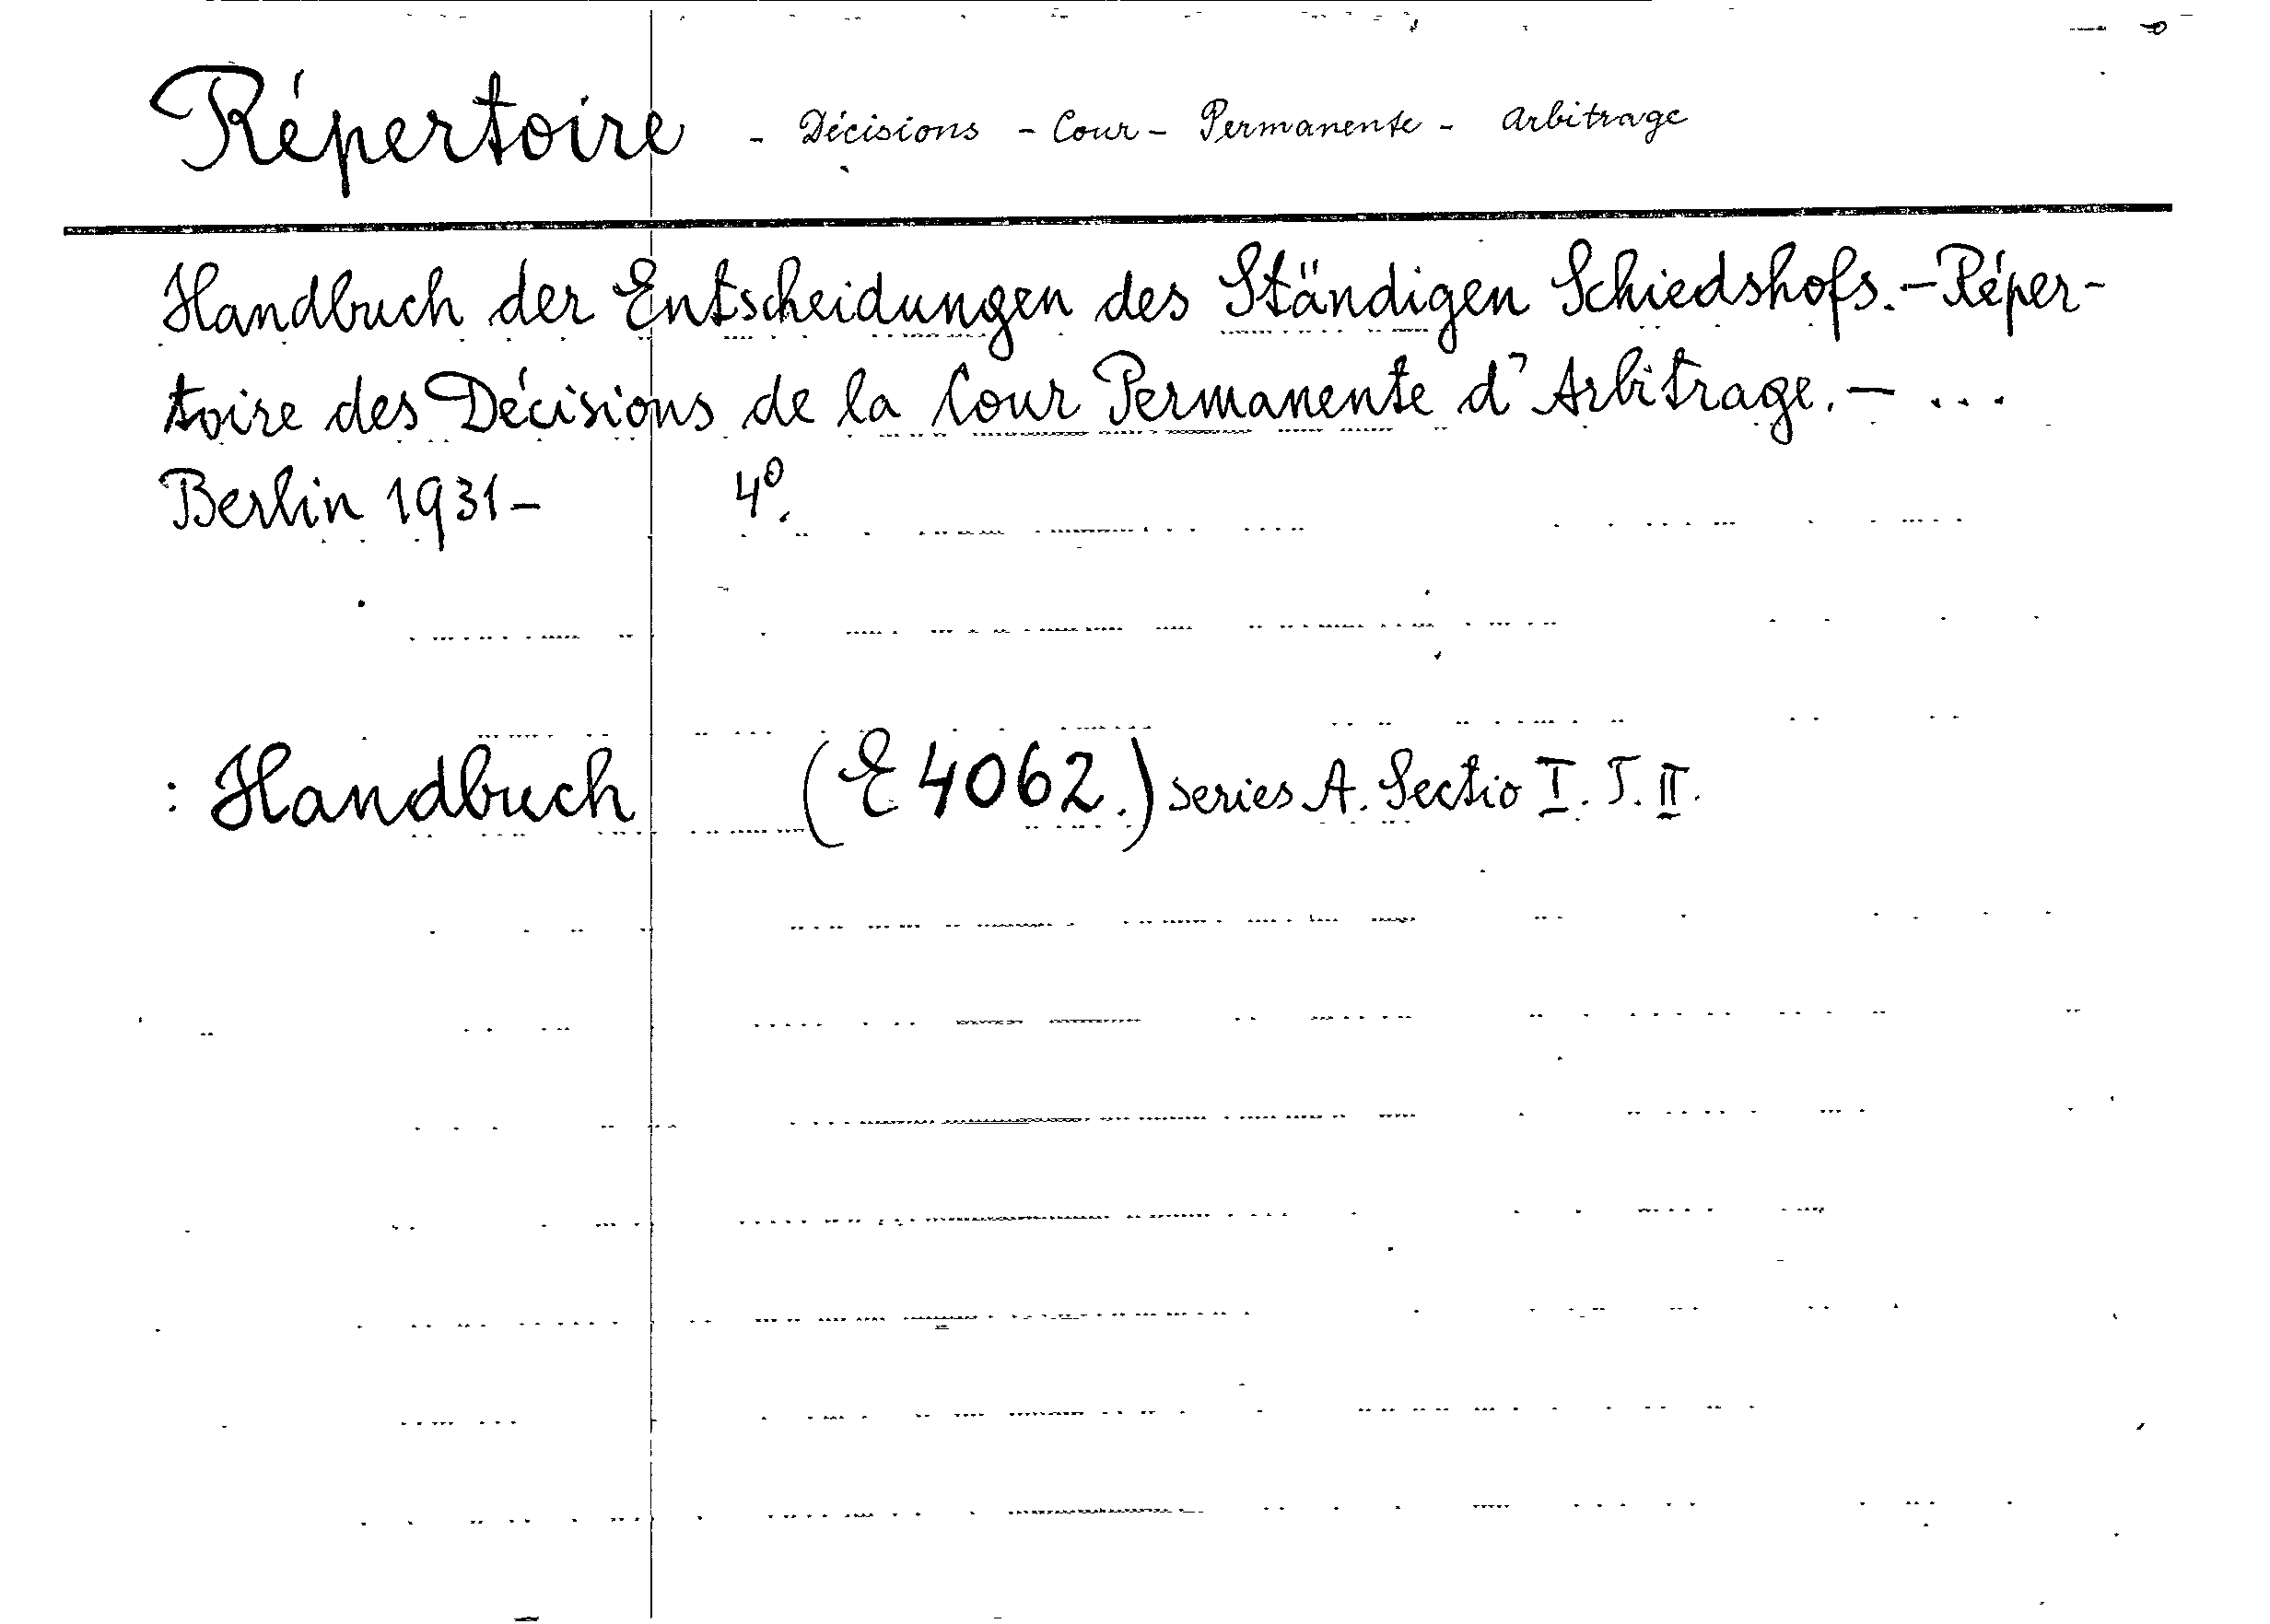 Répertoire - Décisions - Cour - Permanente - Arbitrage
Handbuch der Entscheidungen des Ständigen Schiedshofs. - Réper-
toire des Décisions de la Cour Permanente d'Arbitrage. - ...
Berlin 1931- 4°.
: Handbuch (E 4062.) series A. Sectio I. T. II.